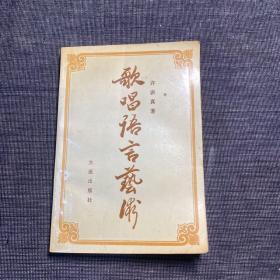 许讲真著
歌唱语言艺术
文化出版社